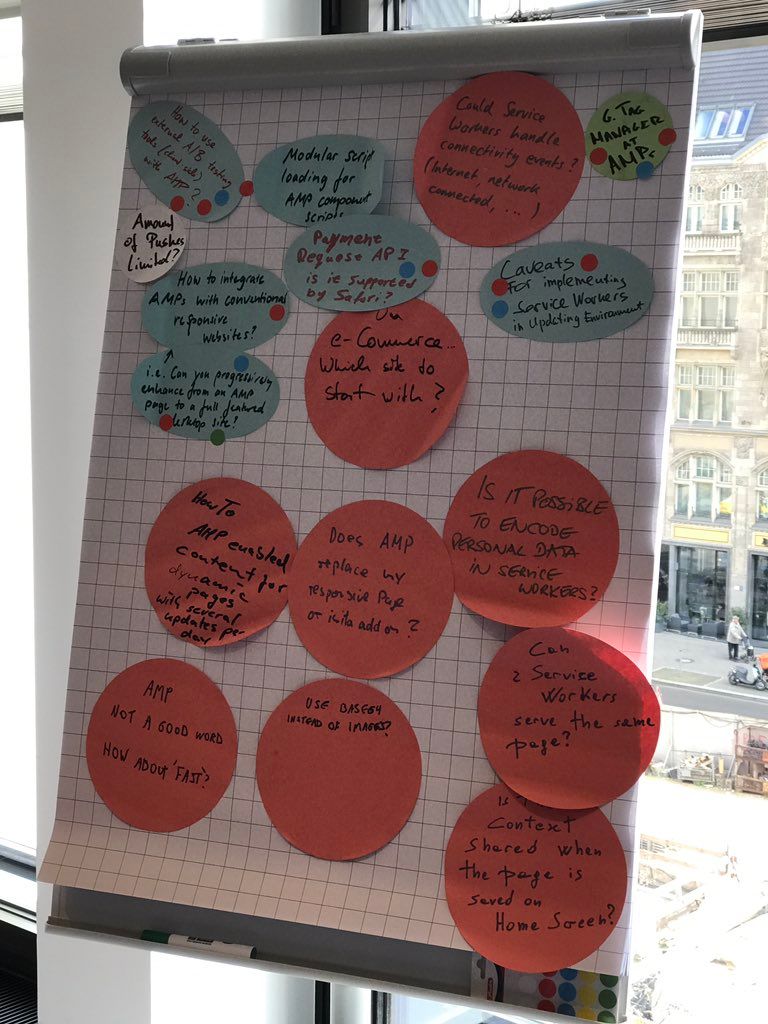 How to use
external A/B testing
tools (client side)
with AMP?
Modular script
loading for
AMP component
scripts
Could Service
Workers handle
connectivity events?
(Internet, network
connected, ...)
G. TAG
MANAGER
AT
AMPs
Amount
of Pushes
Limited?
Payment
Request API
is it supported
by Safari?
How to integrate
AMPs with conventional
responsive
websites?
Caveats
For implementing
Service Workers
in Updating Environment
i.e. Can you progressively
enhance from an AMP
page to a full featured
desktop site?
e-Commerce...
Which site do
start with?
How To
AMP enabled
content for
dynamic
pages
with several
updates per
day
Does AMP
replace my
responsive Page
or is it a add on?
IS IT POSSIBLE
TO ENCODE
PERSONAL DATA
IN SERVICE
WORKERS?
AMP
NOT A GOOD WORD
HOW ABOUT 'FAST'?
USE BASE64
INSTEAD OF IMAGES?
Can
2 Service
Workers
serve the same
page?
Is
Context
Shared when
the page is
saved on
Home Screen?